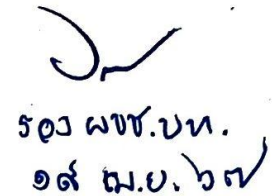 รอง ผชช.บท.
๑๙ เม.ย. ๖๗